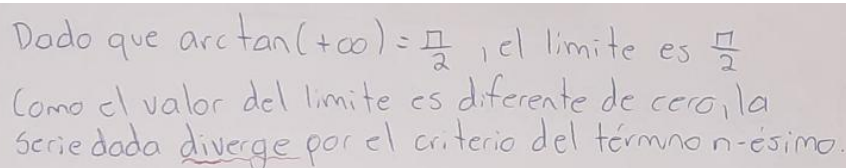 Dado que arctan(+∞) = π/2, el limite es π/2
Como el valor del limite es diferente de cero, la
serie dada diverge por el criterio del térmno n-ésimo.